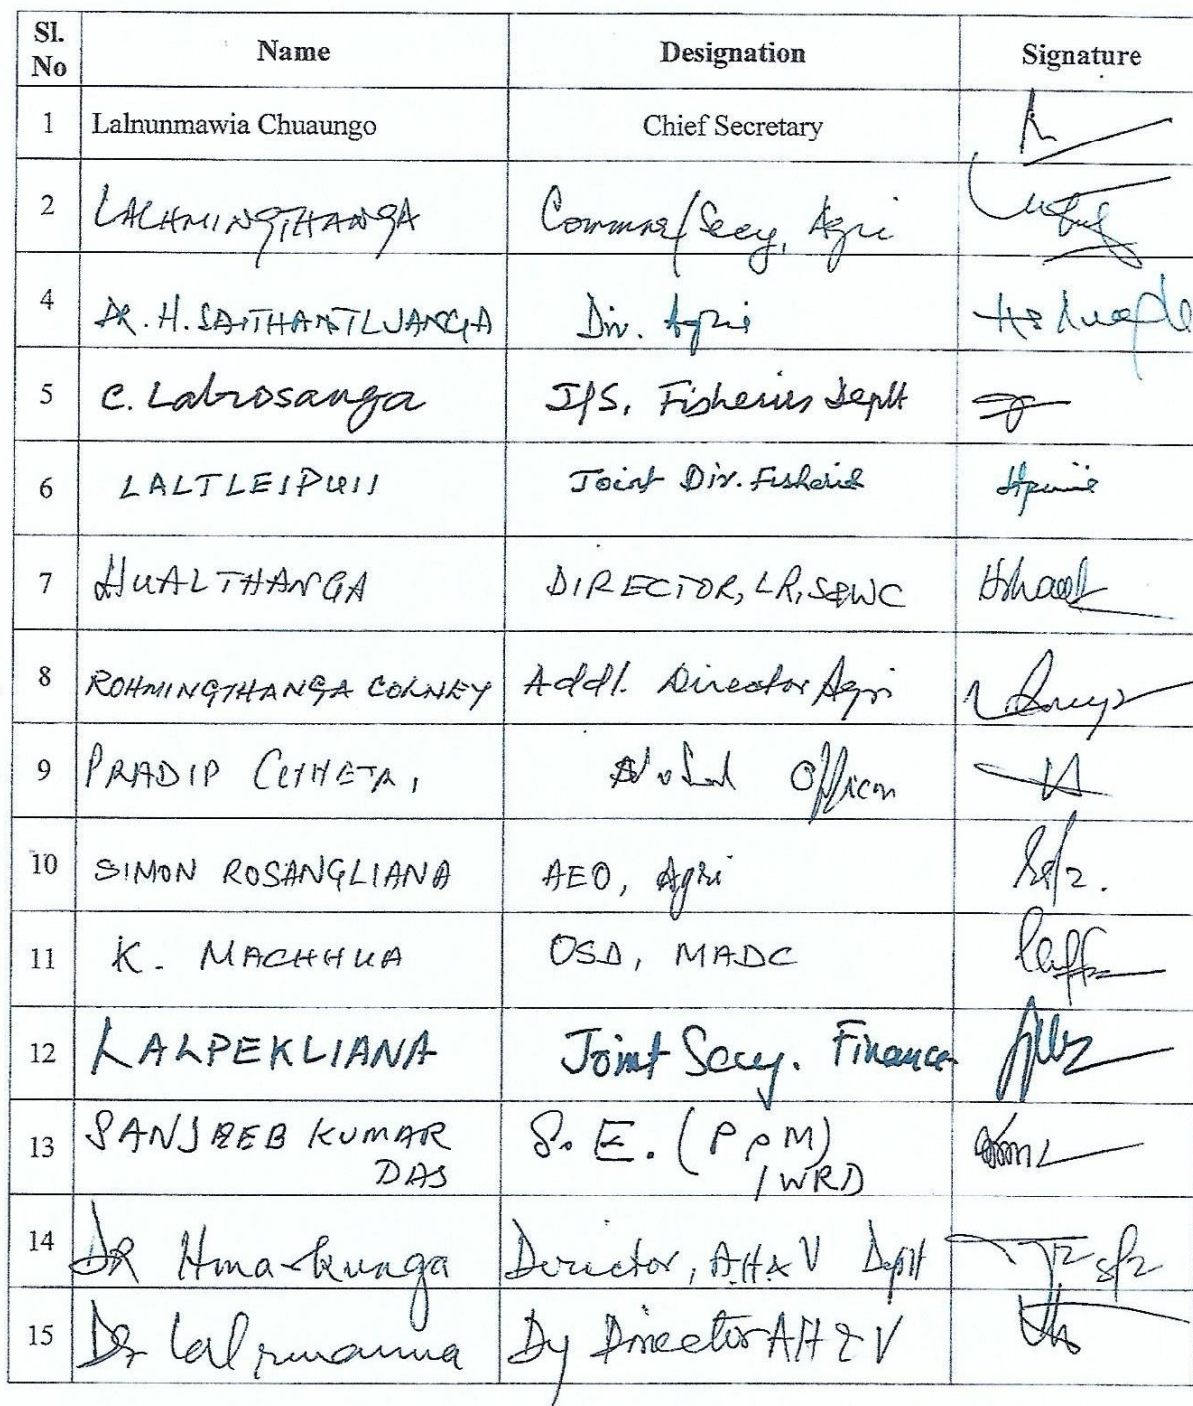 Sl. No Name Designation Signature
1 Lalnunmawia Chuaungo Chief Secretary
2 LALHMINGTHANGA Commr/Secy, Agri
4 DR. H. SAITHANTLUANGA Dir. Agri
5 C. Lalrosanga J/S, Fisheries Deptt
6 LALTLEIPUII Joint Dir. Fisheries
7 HUALTHANGA DIRECTOR, LR, S&WC
8 ROHMINGTHANGA COLNEY Addl. Director Agri
9 PRADIP CHHETRI, Nodal Officer
10 SIMON ROSANGLIANA AEO, Agri
11 K. MACHHUA OSD, MADC
12 LALPEKLIANA Joint Secy. Finance
13 SANJEEB KUMAR S. E. (P&M)
DAS IWRD
14 DR Hmarkunga Director, AH & V Deptt
15 Dr Lal Dy Director AH & V